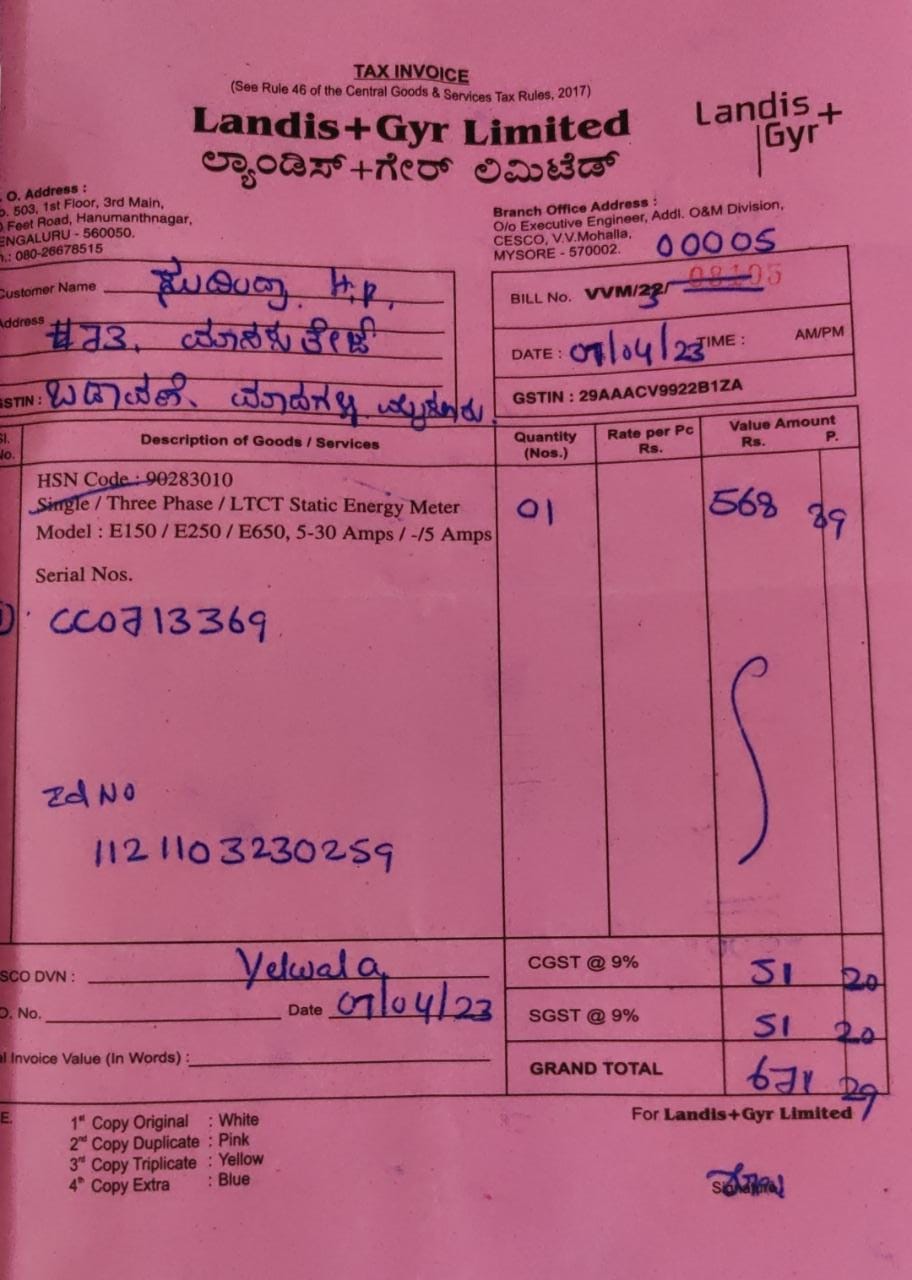 TAX INVOICE
(See Rule 46 of the Central Goods & Services Tax Rules, 2017)
Landis+Gyr Limited
ಲ್ಯಾಂಡಿಸ್+ಗೇರ್ ಲಿಮಿಟೆಡ್
Landis+
Gyr+
. O. Address :
. 503, 1st Floor, 3rd Main,
Feet Road, Hanumanthnagar,
ENGALURU - 560050.
.: 080-26678515
Branch Office Address :
O/o Executive Engineer, Addl. O&M Division,
CESCO, V.V.Mohalla,
MYSORE - 570002.
00005
Customer Name H.P.
Address #73.
GSTIN :
BILL No. VVM/23/ 08105
DATE : 07/04/23 TIME : AM/PM
GSTIN : 29AAACV9922B1ZA
Sl. No. Description of Goods / Services Quantity (Nos.) Rate per Pc Rs. Value Amount Rs. P.
HSN Code : 90283010
Single / Three Phase / LTCT Static Energy Meter 01 568 89
Model : E150 / E250 / E650, 5-30 Amps / -/5 Amps
Serial Nos.
1) CC0713369
Id No
1121103230259
SCO DVN : Yelwala
CGST @ 9% 51 20
O. No. Date 07/04/23
SGST @ 9% 51 20
l Invoice Value (In Words) :
GRAND TOTAL 671 29
E. 1st Copy Original : White
2nd Copy Duplicate : Pink
3rd Copy Triplicate : Yellow
4th Copy Extra : Blue
For Landis+Gyr Limited